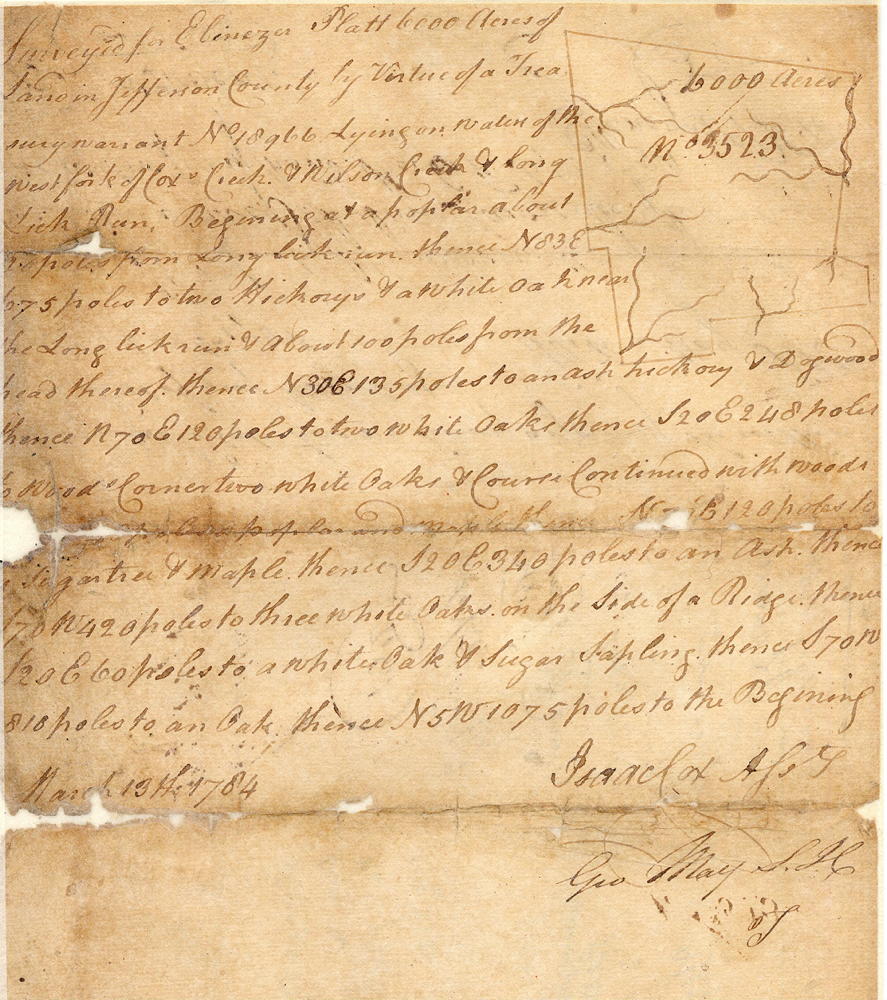 Surveyed for Ebinezer Platt 6000 Acres of
Land in Jefferson County by Virtue of a Trea
sury warrant No 18966 Lying on waters of the
west fork of Cox's Creek & Wilson Creek & Long
Lick Run, Begining at a poplar about
poles from Long lick run thence N83E
675 poles to two Hickorys & a white Oak near
the Long lick run & About 100 poles from the
head thereof. thence N30E 135 poles to an ash hickory & Dogwood
thence N70E 120 poles to two white Oaks thence S20E 248 poles
to Woods Corner two white Oaks & Course Continued with woods
poles a poplar and maple thence 120 poles to
a Sugartree & maple. thence S20E 340 poles to an Ash. thence
S70W 420 poles to three white Oaks. on the Side of a Ridge. thence
S20E 60 poles to a white Oak & Sugar Sapling. thence S70W
810 poles to an Oak. thence N5W 1075 poles to the Begining
March 13th 1784
Isaac Cox Asst
Geo May S. J. C
6000 Acres
No 3523